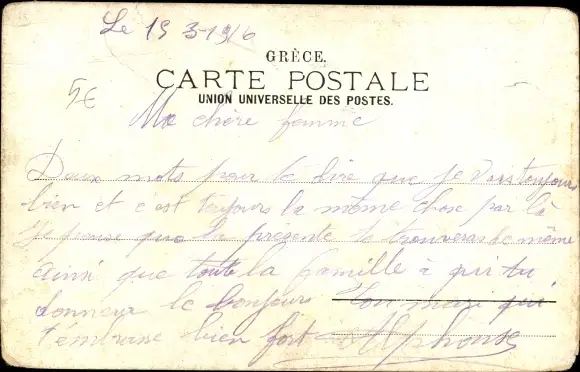 Le 19 3-1916
GRÈCE.
CARTE POSTALE
UNION UNIVERSELLE DES POSTES.
5€
Ma chère femme
Deux mots pour te dire que je vais toujours
bien et c'est toujours la même chose par là
Je pense que la présente te trouveras de même
ainsi que toute la famille à qui tu
donneras le bonjour Ton mari qui
t'embrasse bien fort Alphonse